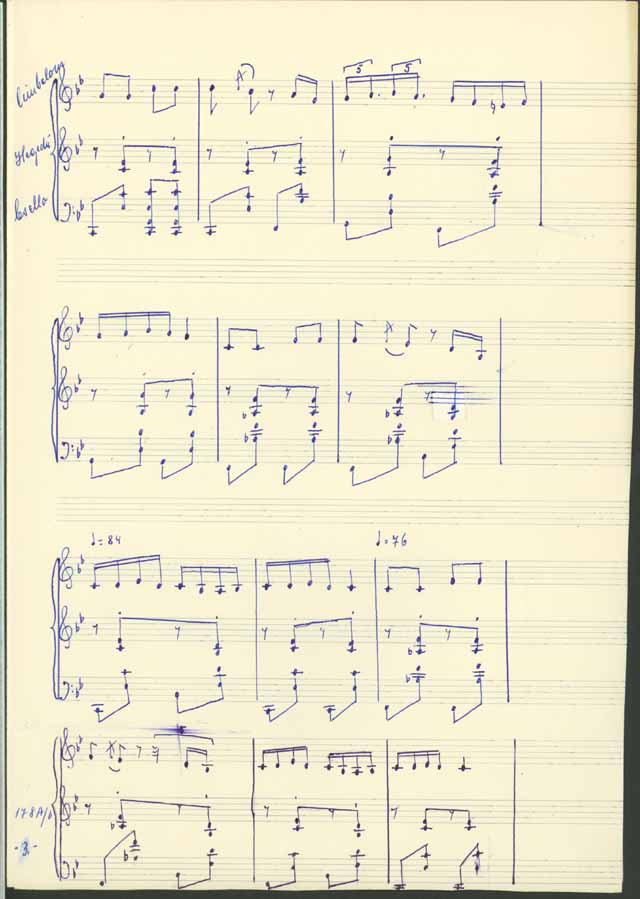 Cimbalom
Hegedű
Csello
5 5
♩= 84 ♩= 76
178A/b
-3.-